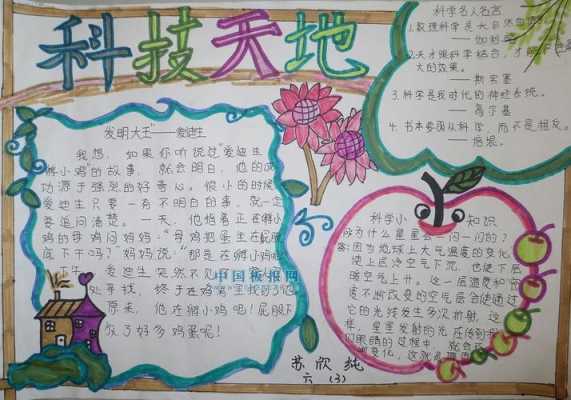 科技天地
发明大王"——爱迪生
我想，如果你听说过"爱迪生
孵小鸡"的故事，就会明白，他的成
功源于强烈的好奇心。很小的时候
爱迪生只要一有不明白的事，就一定
要追问清楚。一天，他指着正在孵小
鸡的母鸡问妈妈："母鸡把蛋坐在屁股
底下干吗？"妈妈说："那是在孵小鸡
爱迪生突然不见
处寻找，终于在鸡窝里找到了他
原来，他在孵小鸡呢！屁股下
放了好多鸡蛋呢！
中国板报网
科学名人名言
1.数理科学是大自然
——伽利略
2.天才跟科学结合，才
大的效果。
——斯宾塞
3.科学是我时代的神经系统。
——高尔基
4.书本要服从科学，而不是相反。
——培根。
科学小知识
为什么星星会一闪一闪的？
答:因为地球上大气温度的变化
使上层冷空气下沉，也使下层
暖空气上升。这一层温度和密
度不断改变的空气层会使通过
它的光线发生多次折射，这
样，星星发射的光在传到
们眼睛的过程中，就会
变化，这就
苏欣纯
六（3）